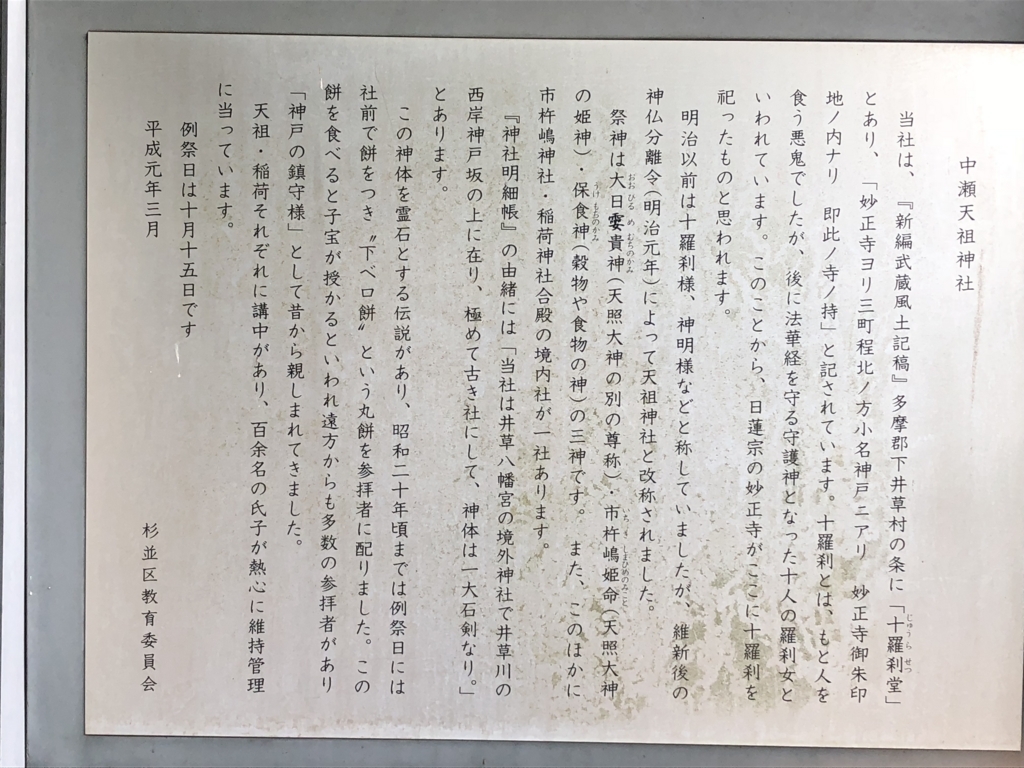 中瀬天祖神社
当社は、『新編武蔵風土記稿』多摩郡下井草村の条に「十羅刹堂」
じゅうらせつ
とあり、「妙正寺ヨリ三町程北ノ方小名神戸ニアリ　妙正寺御朱印
地ノ内ナリ　即此ノ寺ノ持」と記されています。十羅刹とは、もと人を
食う悪鬼でしたが、後に法華経を守る守護神となった十人の羅刹女と
いわれています。このことから、日蓮宗の妙正寺がここに十羅刹を
祀ったものと思われます。
明治以前は十羅刹様、神明様などと称していましたが、維新後の
神仏分離令(明治元年)によって天祖神社と改称されました。
祭神は大日孁貴神(天照大神の別の尊称)・市杵嶋姫命(天照大神
おおひるめむちのかみ　いちきしまひめのみこと
の姫神)・保食神(穀物や食物の神)の三神です。　また、このほかに
うけもちのかみ
市杵嶋神社・稲荷神社合殿の境内社が一社あります。
『神社明細帳』の由緒には「当社は井草八幡宮の境外神社で井草川の
西岸神戸坂の上に在り、極めて古き社にして、神体は一大石剣なり。」
とあります。
この神体を霊石とする伝説があり、昭和二十年頃までは例祭日には
社前で餅をつき〝下ベロ餅〟という丸餅を参拝者に配りました。この
餅を食べると子宝が授かるといわれ遠方からも多数の参拝者があり
「神戸の鎮守様」として昔から親しまれてきました。
天祖・稲荷それぞれに講中があり、百余名の氏子が熱心に維持管理
に当っています。
例祭日は十月十五日です
平成元年三月
杉並区教育委員会